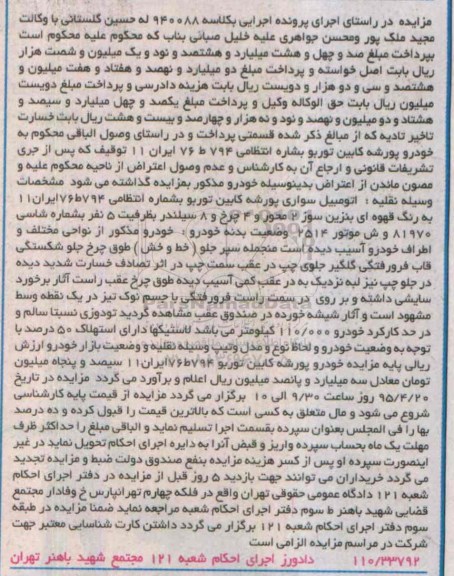 مزایده در راستای اجرای پرونده اجرایی بکلاسه ۹۴۰۰۸۸ له حسین گلستانی با وکالت
مجید ملک پور ومحسن جواهری علیه خلیل صبائی بناب که محکوم علیه محکوم است
بپرداخت مبلغ صد و چهل و هشت میلیارد و هشتصد و نود و یک میلیون و شصت هزار
ریال بابت اصل خواسته و پرداخت مبلغ دو میلیارد و نهصد و هفتاد و هفت میلیون و
هشتصد و سی و دو هزار و دویست ریال بابت هزینه دادرسی و پرداخت مبلغ دویست
میلیون ریال بابت حق الوکاله وکیل و پرداخت مبلغ یکصد و چهل میلیارد و سیصد و
هشتاد و دو میلیون و نهصد و نود و نه هزار و چهارصد و بیست و هشت ریال بابت خسارت
تاخیر تادیه که از مبالغ ذکر شده قسمتی پرداخت و در راستای وصول الباقی محکوم به
خودرو پورشه کابین توربو بشاره انتظامی ۷۹۴ ط ۷۶ ایران ۱۱ توقیف که پس از جری
تشریفات قانونی و ارجاع آن به کارشناس و عدم وصول اعتراض از ناحیه محکوم علیه و
مصون ماندن از اعتراض بدینوسیله خودرو مذکور بمزایده گذاشته می شود مشخصات
وسیله نقلیه : اتومبیل سواری پورشه کابین توربو بشماره انتظامی ۷۹۴ط۷۶ایران۱۱
به رنگ قهوه ای بنزین سوز ۲ محور و ۴ چرخ و ۸ سیلندر بظرفیت ۵ نفر بشماره شاسی
۸۱۹۷۰ و ش موتور ۲۵۱۴ وضعیت بدنه خودرو : خودرو مذکور از نواحی مختلف و
اطراف خودرو آسیب دیده است منجمله سپر جلو ( خط و خش ) طوق چرخ جلو شکستگی
قاب فرورفتگی گلگیر جلوی چپ در عقب سمت چپ در اثر تصادف خسارت شدید دیده
در جلو چپ نیز لبه نزدیک به در عقب کمی آسیب دیده طوق چرخ عقب راست آثار برخورد
سایشی داشته و بر روی در سمت راست فرورفتگی با جسم نوک تیز در یک نقطه وسط
مشهود است و آثار شیشه خورده در صندوق عقب مشاهده گردید تودوزی نسبتا سالم و
در حد کارکرد خودرو ۱۱۰/۰۰۰ کیلومتر می باشد لاستیکها دارای استهلاک ۵۰ درصد با
توجه به وضعیت خودرو و لحاظ نوع و مدل وتیپ وسیله نقلیه و وضعیت بازار خودرو ارزش
ریالی پایه مزایده خودرو پورشه کابین توربو ۷۹۴ط۷۶ایران۱۱ سیصد و پنجاه میلیون
تومان معادل سه میلیارد و پانصد میلیون ریال اعلام و برآورد می گردد مزایده در تاریخ
۹۵/۴/۲۰ روز ساعت ۹/۳۰ الی ۱۰ برگزار می گردد مزایده از قیمت پایه کارشناسی
شروع می شود و مال متعلق به کسی است که بالاترین قیمت را قبول کرده و ده درصد
بها را فی المجلس بعنوان سپرده بقسمت اجرا تسلیم نماید و الباقی مبلغ را حداکثر ظرف
مهلت یک ماه بحساب سپرده واریز و قبض آنرا به دایره اجرای احکام تحویل نماید در غیر
اینصورت سپرده او پس از کسر هزینه مزایده بنفع صندوق دولت ضبط و مزایده تجدید
می گردد خریداران می توانند جهت بازدید ۵ روز قبل از مزایده در دفتر اجرای احکام
شعبه ۱۲۱ دادگاه عمومی حقوقی تهران واقع در فلکه چهارم تهرانپارس خ وفادار مجتمع
قضایی شهید باهنر ط سوم دفتر اجرای احکام شعبه مراجعه نماید ضمنا مزایده در طبقه
سوم دفتر اجرای احکام شعبه ۱۲۱ برگزار می گردد داشتن کارت شناسایی معتبر جهت
شرکت در مراسم مزایده الزامی است
۱۱۰/۳۳۷۹۲ دادورز اجرای احکام شعبه ۱۲۱ مجتمع شهید باهنر تهران